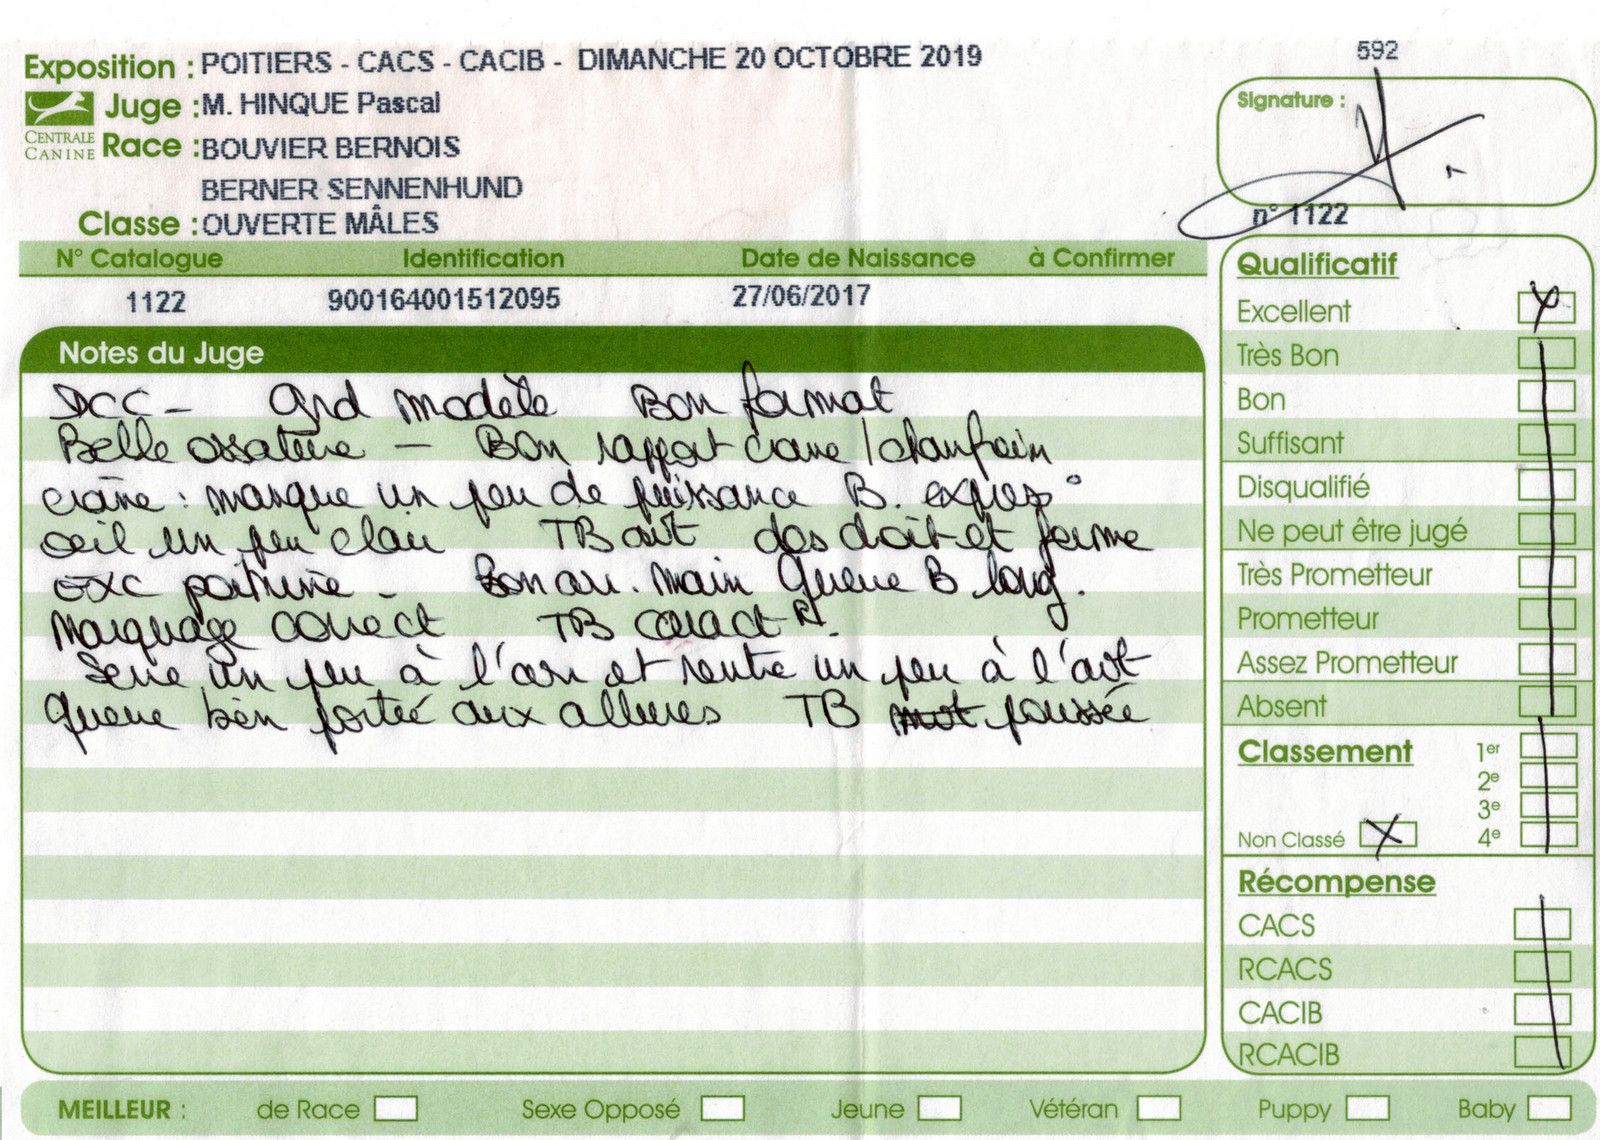 592
Exposition : POITIERS - CACS - CACIB - DIMANCHE 20 OCTOBRE 2019
Juge : M. HINQUE Pascal
CENTRALE CANINE
Race : BOUVIER BERNOIS
BERNER SENNENHUND
Classe : OUVERTE MÂLES
Signature :
n° 1122
N° Catalogue Identification Date de Naissance à Confirmer
1122 900164001512095 27/06/2017
Notes du Juge
DCC - Grd modèle Bon format
Belle ossature - Bon rapport crane / chanfrein
crâne : manque un peu de puissance B. express°
oeil un peu clair TB avt dos droit et ferme
exc poitrine - Bon au. main Queue B long.
Marquage correct TB caract R.
Serre un peu à l'arr et rentre un peu à l'avt
Queue bien portée aux allures TB poussée
Qualificatif
Excellent X
Très Bon
Bon
Suffisant
Disqualifié
Ne peut être jugé
Très Prometteur
Prometteur
Assez Prometteur
Absent
Classement 1er
2e
3e
Non Classé X 4e
Récompense
CACS
RCACS
CACIB
RCACIB
MEILLEUR : de Race Sexe Opposé Jeune Vétéran Puppy Baby